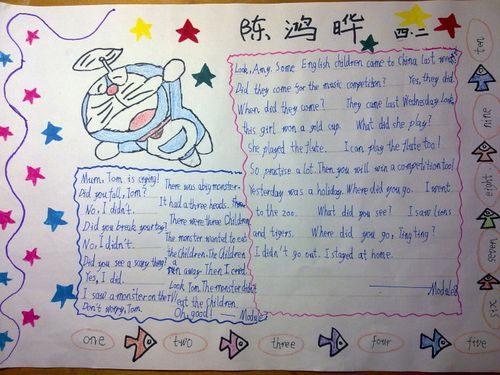 陈鸿晔 四.二
Look, Amy. Some English children came to China last week.
Did they come for the music competition? Yes, they did.
When did they come? They came last Wednesday. Look,
this girl won a gold cup. What did she play?
She played the flute. I can play the flute too!
So practise a lot. Then you will win a competition too!
Yesterday was a holiday. Where did you go. I went
to the zoo. What did you see? I saw lions
and tigers. Where did you go, Tingting?
I didn't go out. I stayed at home.
Module8
Mum, Tom is crying!
Did you fall, Tom?
No, I didn't.
Did you break your toy?
No, I didn't.
Did you see a scary thing?
Yes, I did.
I saw a monster on the TV
Don't worry, Tom.
There was a big monster.
It had a three heads.
There were three Children.
The monster wanted to eat
the Children. The Children
ran away. Then I cried.
Look Tom. The monster didn't
eat the Children.
Oh, good! Module
one two three four five
six
seven
eight
nine
ten